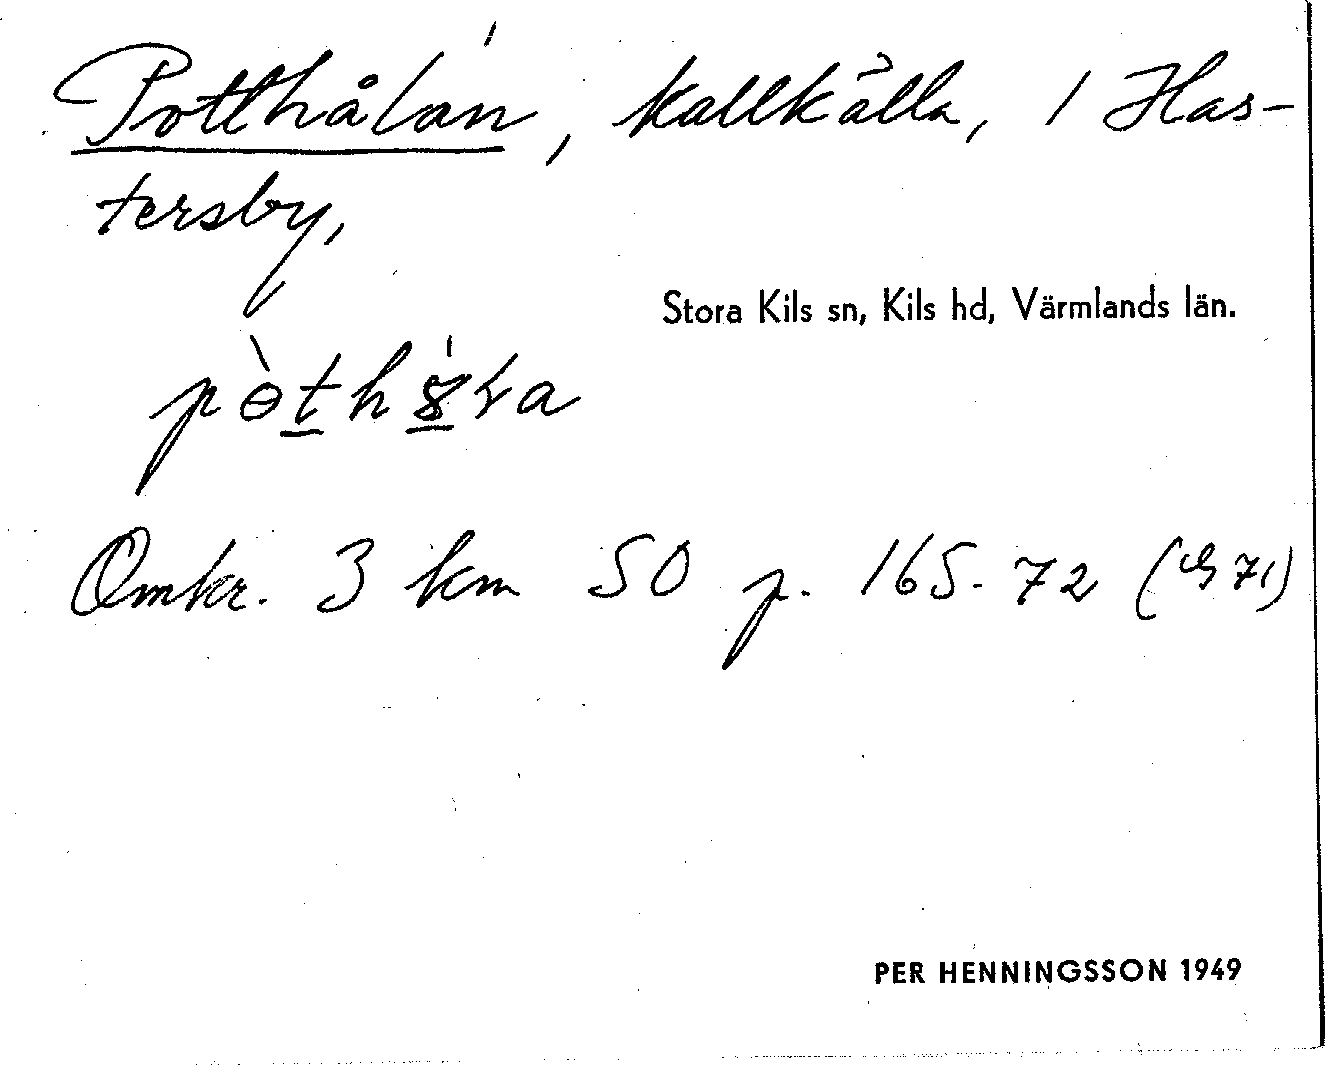 Potthålan, kallkälla, 1 Has-
tersby,
Stora Kils sn, Kils hd, Värmlands län.
Omkr. 3 km SO p. 165.72 (G 71)
PER HENNINGSSON 1949